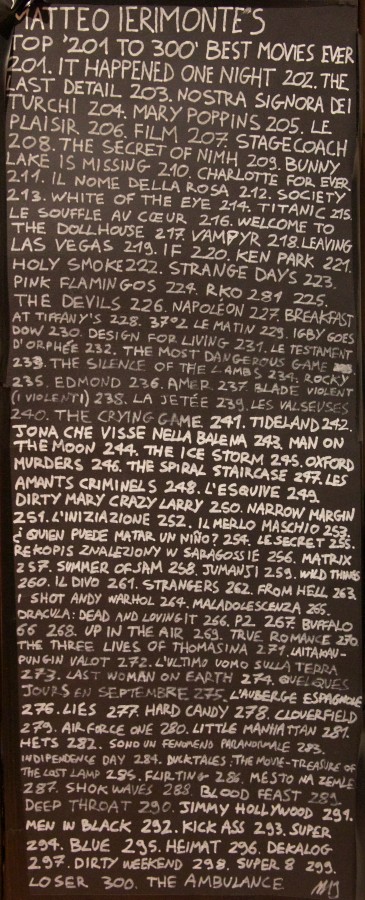 MATTEO IERIMONTE'S
TOP '201 TO 300' BEST MOVIES EVER
201. IT HAPPENED ONE NIGHT 202. THE
LAST DETAIL 203. NOSTRA SIGNORA DEI
TURCHI 204. MARY POPPINS 205. LE
PLAISIR 206. FILM 207. STAGECOACH
208. THE SECRET OF NIMH 209. BUNNY
LAKE IS MISSING 210. CHARLOTTE FOR EVER
211. IL NOME DELLA ROSA 212. SOCIETY
213. WHITE OF THE EYE 214. TITANIC 215.
LE SOUFFLE AU CŒUR 216. WELCOME TO
THE DOLLHOUSE 217. VAMPYR 218. LEAVING
LAS VEGAS 219. IF 220. KEN PARK 221.
HOLY SMOKE 222. STRANGE DAYS 223.
PINK FLAMINGOS 224. RKO 281 225.
THE DEVILS 226. NAPOLÉON 227. BREAKFAST
AT TIFFANY'S 228. 37°2 LE MATIN 229. IGBY GOES
DOW 230. DESIGN FOR LIVING 231. LE TESTAMENT
D'ORPHÉE 232. THE MOST DANGEROUS GAME
233. THE SILENCE OF THE LAMBS 234. ROCKY
235. EDMOND 236. AMER 237. BLADE VIOLENT
(I VIOLENTI) 238. LA JETÉE 239. LES VALSEUSES
240. THE CRYING GAME 241. TIDELAND 242.
JONA CHE VISSE NELLA BALENA 243. MAN ON
THE MOON 244. THE ICE STORM 245. OXFORD
MURDERS 246. THE SPIRAL STAIRCASE 247. LES
AMANTS CRIMINELS 248. L'ESQUIVE 249.
DIRTY MARY CRAZY LARRY 250. NARROW MARGIN
251. L'INIZIAZIONE 252. IL MERLO MASCHIO 253.
¿QUIEN PUEDE MATAR UN NIÑO? 254. LE SECRET 255.
REKOPIS ZNALEZIONY W SARAGOSSIE 256. MATRIX
257. SUMMER OF SAM 258. JUMANJI 259. WILD THINGS
260. IL DIVO 261. STRANGERS 262. FROM HELL 263.
I SHOT ANDY WARHOL 264. MALADOLESCENZA 265.
DRACULA: DEAD AND LOVING IT 266. P2 267. BUFFALO
66 268. UP IN THE AIR 269. TRUE ROMANCE 270
THE THREE LIVES OF THOMASINA 271. LAITAKAU-
PUNGIN VALOT 272. L'ULTIMO UOMO SULLA TERRA
273. LAST WOMAN ON EARTH 274. QUELQUES
JOURS EN SEPTEMBRE 275. L'AUBERGE ESPAGNOLE
276. LIES 277. HARD CANDY 278. CLOVERFIELD
279. AIR FORCE ONE 280. LITTLE MANHATTAN 281.
HETS 282. SONO UN FENOMENO PARANORMALE 283.
INDIPENDENCE DAY 284. DUCKTALES: THE MOVIE-TREASURE OF
THE LOST LAMP 285. FLIRTING 286. MĚSTO NA ZEMLE
287. SHOK WAVES 288. BLOOD FEAST 289.
DEEP THROAT 290. JIMMY HOLLYWOOD 291.
MEN IN BLACK 292. KICK ASS 293. SUPER
294. BLUE 295. HEIMAT 296. DEKALOG
297. DIRTY WEEKEND 298. SUPER 8 299.
LOSER 300. THE AMBULANCE